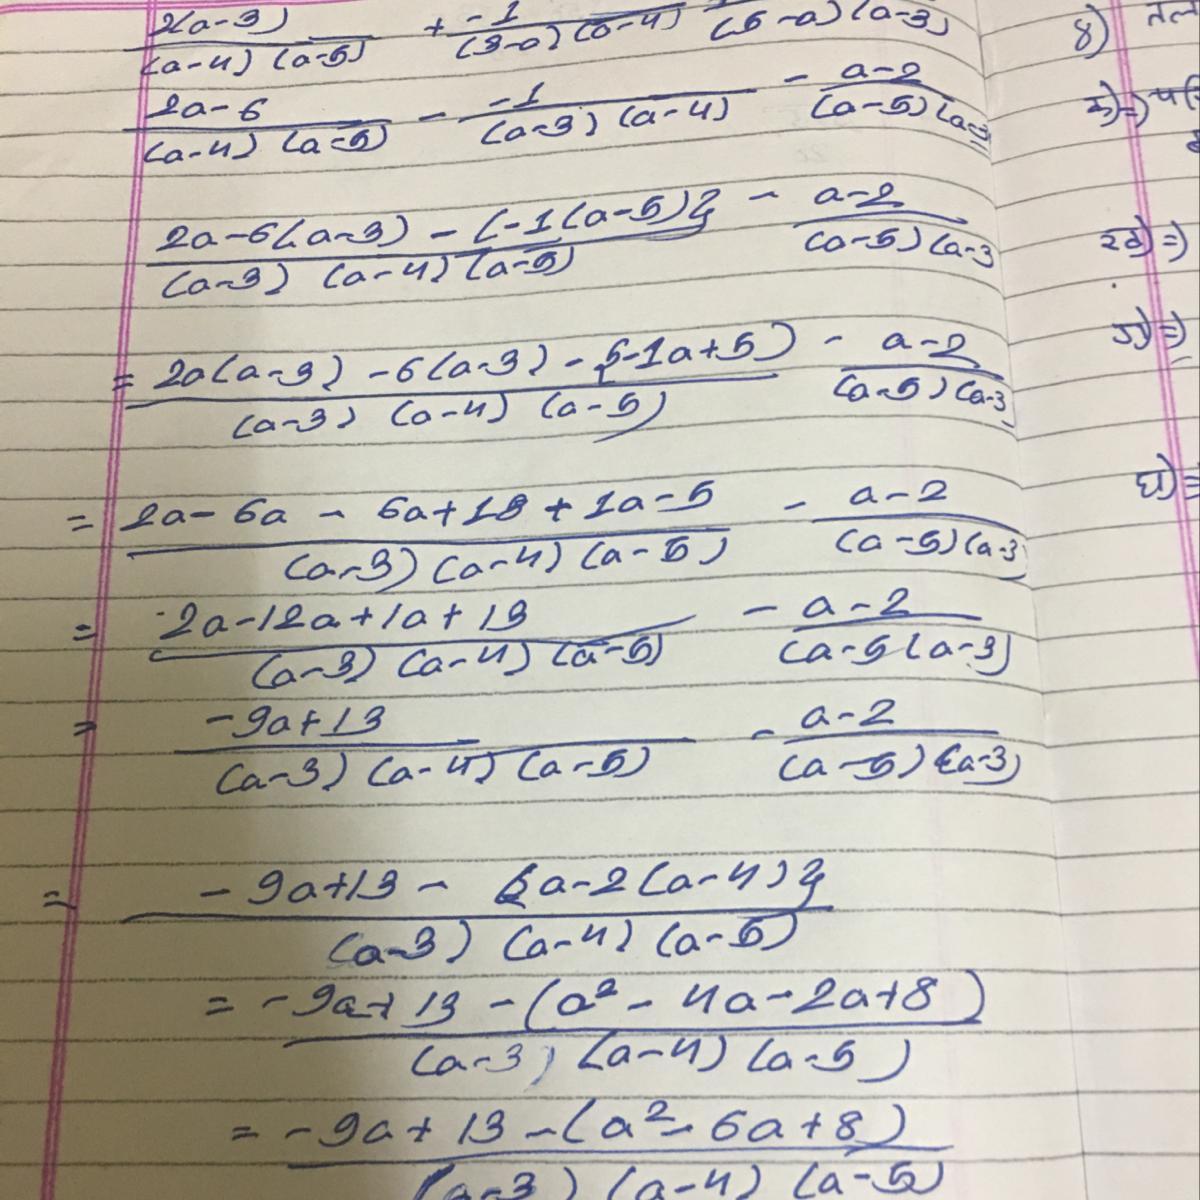 2(a-3) + -1
(a-4) (a-5) (3-a) (a-4) (5-a) (a-3)
2a-6 - -1 - a-2
(a-4) (a-5) (a-3) (a-4) (a-5) (a-3
2a-6(a-3) - {-1(a-5)} - a-2
(a-3) (a-4) (a-5) (a-5) (a-3
= 2a(a-3) -6(a-3) - (-1a+5) - a-2
(a-3) (a-4) (a-5) (a-5) (a-3
= 2a-6a - 6a+18 + 1a-5 - a-2
(a-3) (a-4) (a-5) (a-5) (a-3
= 2a-12a+1a+13 - a-2
(a-3) (a-4) (a-5) (a-5 (a-3)
= -9a+13 - a-2
(a-3) (a-4) (a-5) (a-5) (a-3)
= -9a+13 - {a-2(a-4)}
(a-3) (a-4) (a-5)
= -9a+13 -(a²-4a-2a+8)
(a-3) (a-4) (a-5)
= -9a+13 -(a²-6a+8)
(a-3) (a-4) (a-5)
४)
क)=)
ख)=)
ग)=)
घ)=